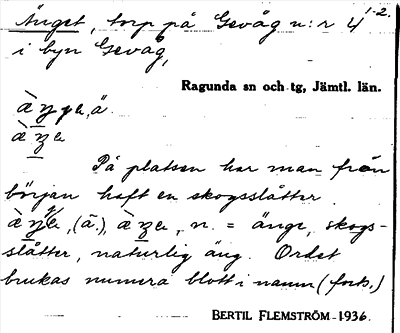 Änget, torp på Gevåg n:r 4 1-2.
i byn Gevåg,
Ragunda sn och tg, Jämtl. län.
På platsen har man från
början haft en skogsslåtter.
n. = änge, skogs-
slåtter, naturlig äng. Ordet
brukas numera blott i namn (forts.)
BERTIL FLEMSTRÖM - 1936.